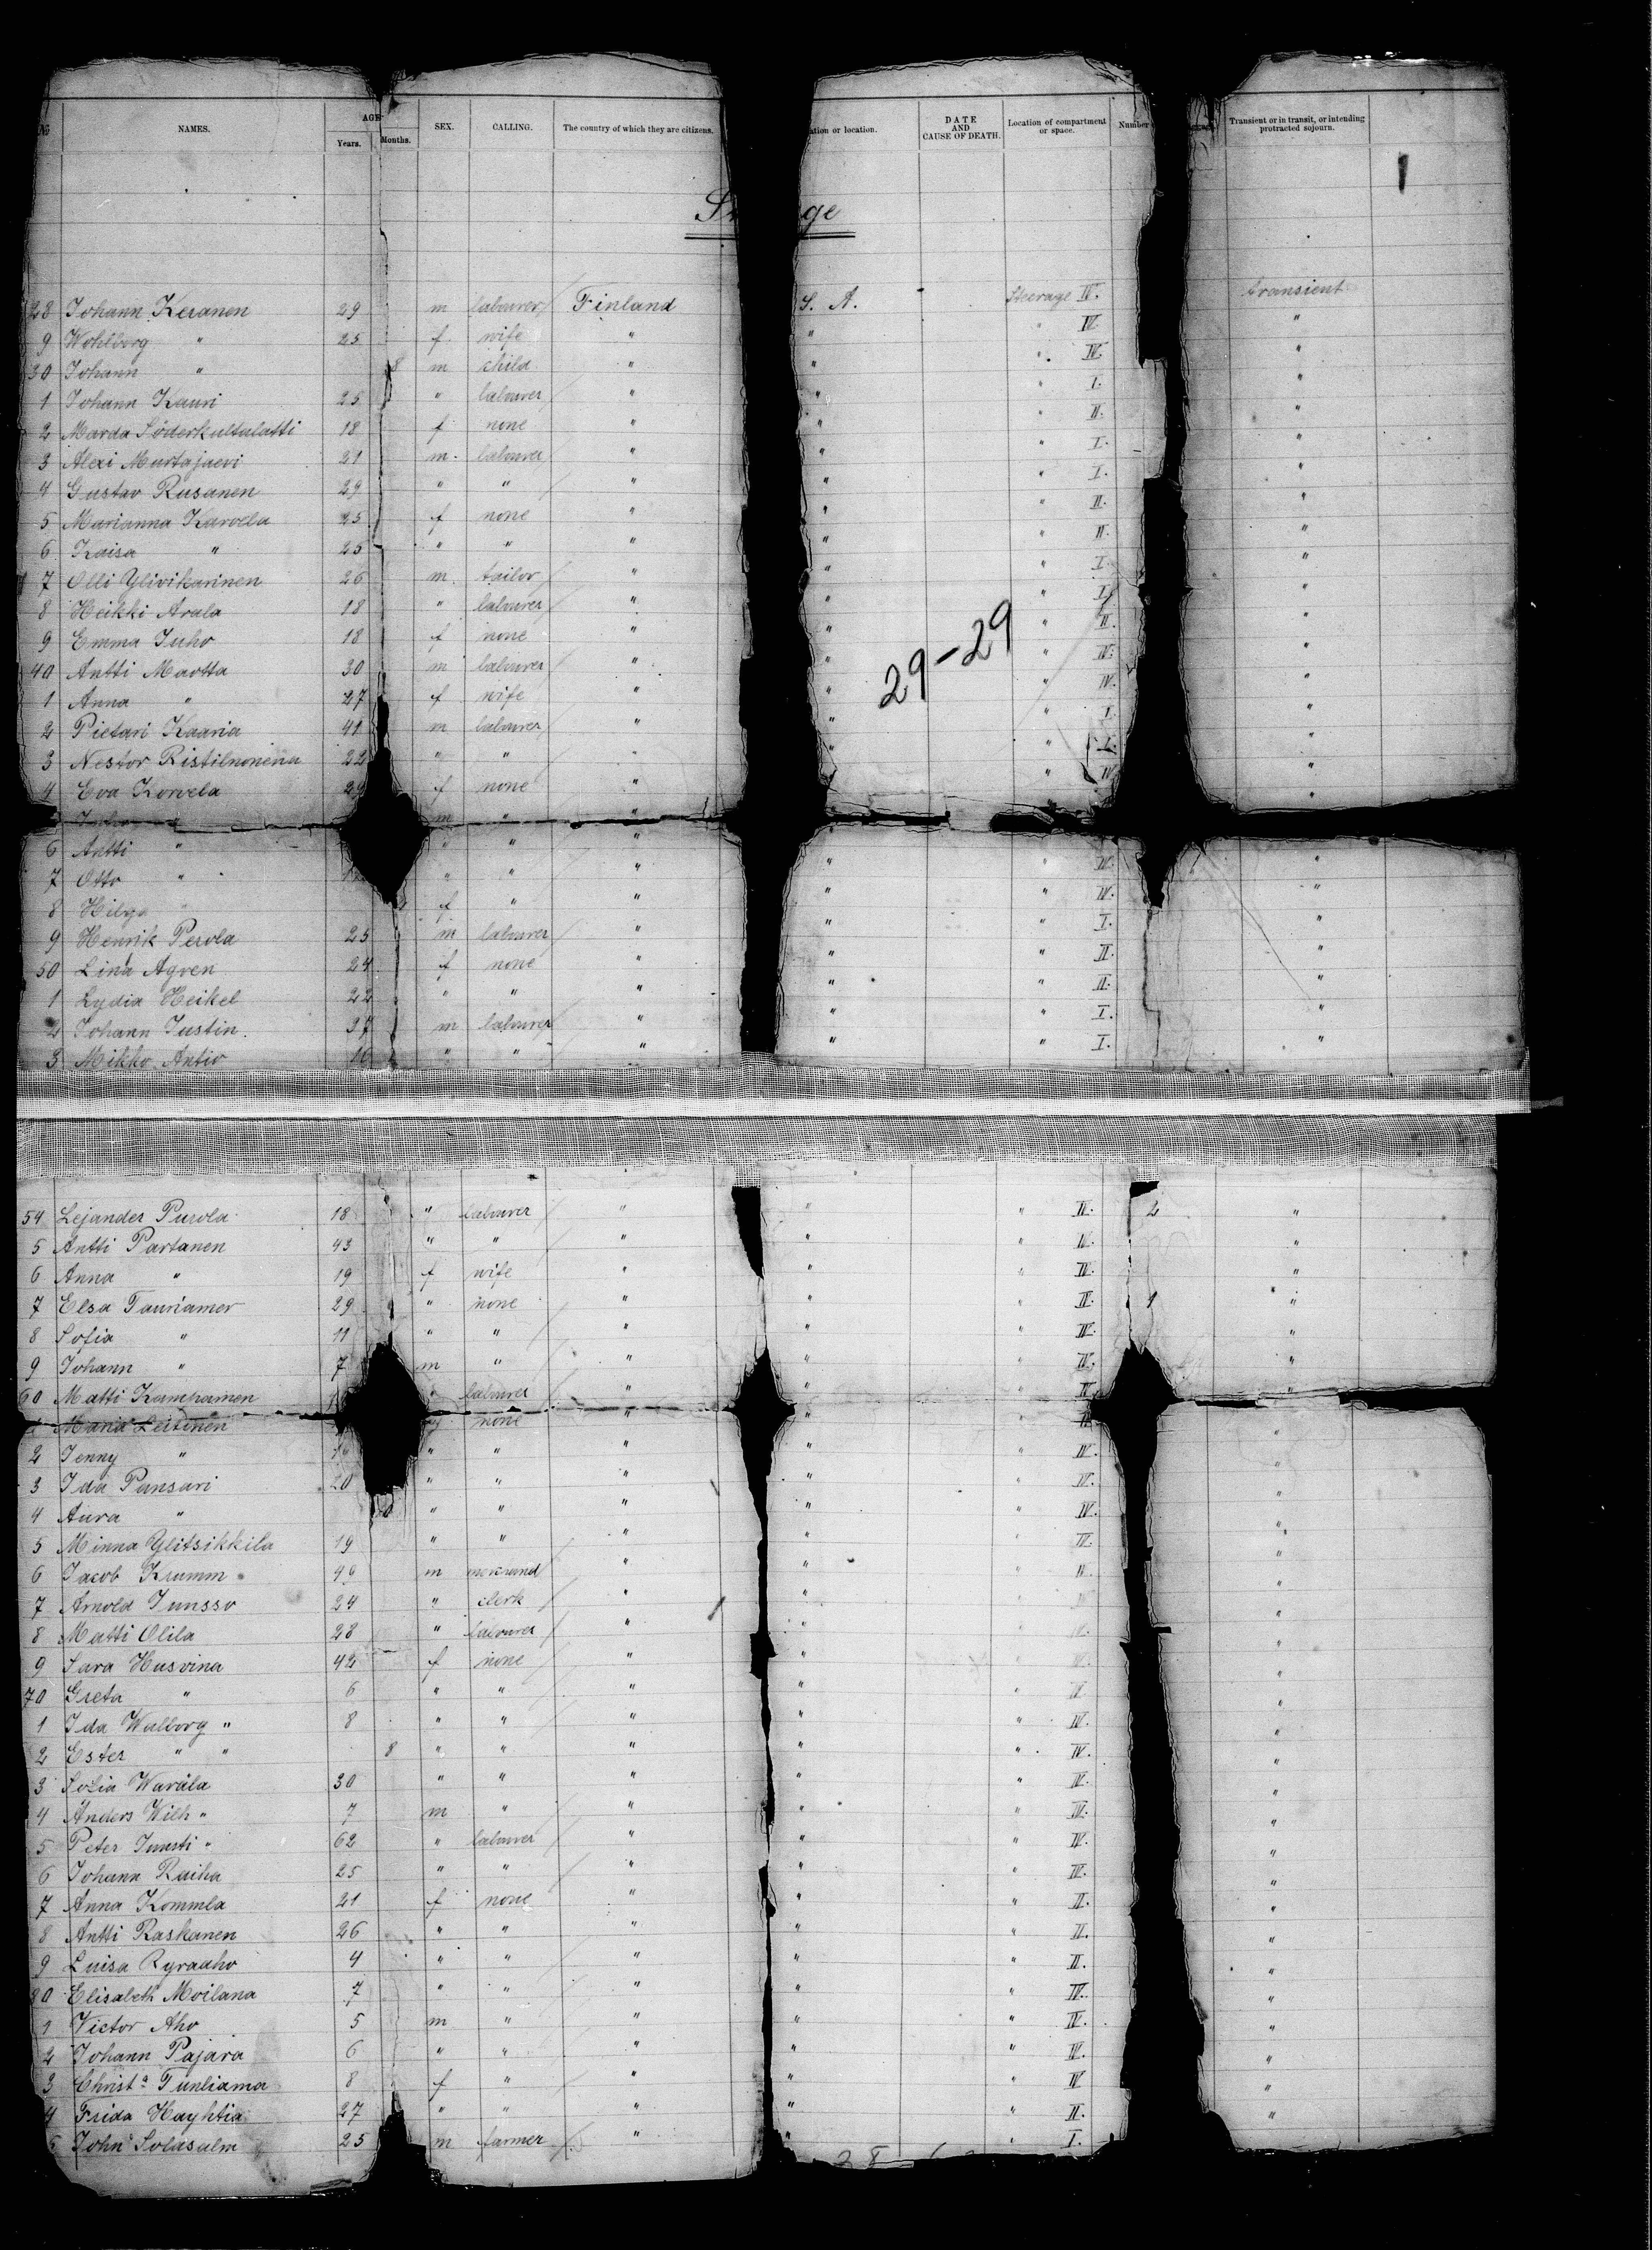 NAMES. AGE Years. Months. SEX. CALLING. The country of which they are citizens. ation or location. DATE AND CAUSE OF DEATH. Location of compartment or space. Number Transient or in transit, or intending protracted sojourn.
1
St ge
28 Johann Keranen 29 m labourer Finland S. A. Steerage IV. transient
9 Wohlborg " 25 f wife " " " IV. "
30 Johann " 8 m child " " " IV. "
1 Johann Kauri 25 " labourer " " " I. "
2 Marda Söderkultalatti 18 f none " " " II. "
3 Alexi Murtajaevi 21 m labourer " " " I. "
4 Gustav Rusanen 29 " " " " " I. "
5 Marianna Karvela 25 f none " " " II. "
6 Kaisa " 25 " " " " " II. "
7 Olli Ylivikarinen 26 m tailor " " " I. "
8 Heikki Arala 18 " labourer " " " I. "
9 Emma Juho 18 f none " " " II. "
29-29
40 Antti Maotta 30 m labourer " " " IV. "
1 Anna " 27 f wife " " " IV. "
2 Pietari Kaaria 41 m labourer " " " I. "
3 Nestor Ristilnonena 22 " " " " " I. "
4 Eva Korvela 29 f none " " " IV "
m " "
6 Antti " " " "
7 Otto " " " " " " IV. "
8 Hilga " f " " " " IV. "
9 Henrik Perola 25 m labourer " " " I. "
50 Lina Agren 24 f none " " " II. "
1 Lydia Heikel 22 " " " " " II. "
2 Johann Justin. 37 m labourer " " " I. "
3 Mikko Antio 16 " " " " " I. "
54 Lejander Purola 18 " labourer " " " II. 2 "
5 Antti Partanen 43 " " " " " IV. "
6 Anna " 19 f wife " " " IV. "
7 Elsa Tauriamer 29 " none " " " IV. 1 "
8 Sofia " 11 " " " " " IV. "
9 Johann " 7 m " " " " IV. "
60 Matti Kamparinen " labourer " " " IV "
Maria Leitinen none " " " "
2 Jenny " " " " " " IV. "
3 Ida Pansari 20 " " " " " IV. "
4 Aura " " " " " " IV. "
5 Minna Ylitsikkila 19 " " " " IV. "
6 Jacob Krumm 40 m " " "
7 Arnold Junsso 24 " clerk " " "
8 Matti Olila 28 " labourer " " "
9 Sara Husvina 42 f none " " "
70 Greta " 6 " " " " " II. "
1 Ida Walborg " 8 " " " " " IV. "
2 Ester " " 8 " " " " " IV. "
3 Sofia Warala 30 " " " " " IV. "
4 Anders Wilh " 7 m " " " " IV. "
5 Peter Juusti " 62 " labourer " " " IV. "
6 Johann Raiha 25 " " " " " IV. "
7 Anna Kommla 21 f none " " " II. "
8 Antti Raskanen 26 " " " " " II. "
9 Luisa Ryraaho 4 " " " " " II. "
80 Elisabeth Moilana 7 " " " " " IV. "
1 Victor Aho 5 m " " " " IV. "
2 Johann Pajara 6 " " " " " IV. "
3 Christa Tunliama 8 f " " " " IV "
4 Frida Hayhtia 27 " " " " " II. "
John Solasalm 25 m farmer " " " I.